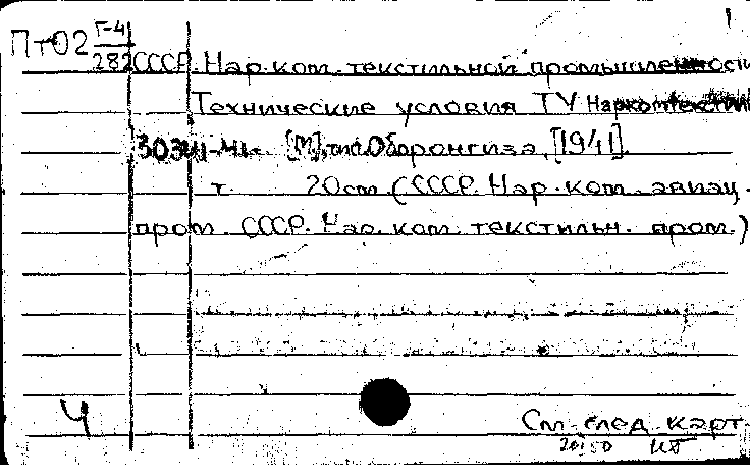 1
ПтО2 Г-4
282 СССР. Нар.ком. текстильной промышленности
Технические условия ТУ Наркомтекстиля
[М], тип. Оборонгиза, [1941].
т. 20 см. (СССР. Нар. ком. авиац.
пром. СССР. Нар. ком. текстильн. пром.)
Ч
См. след. карт.